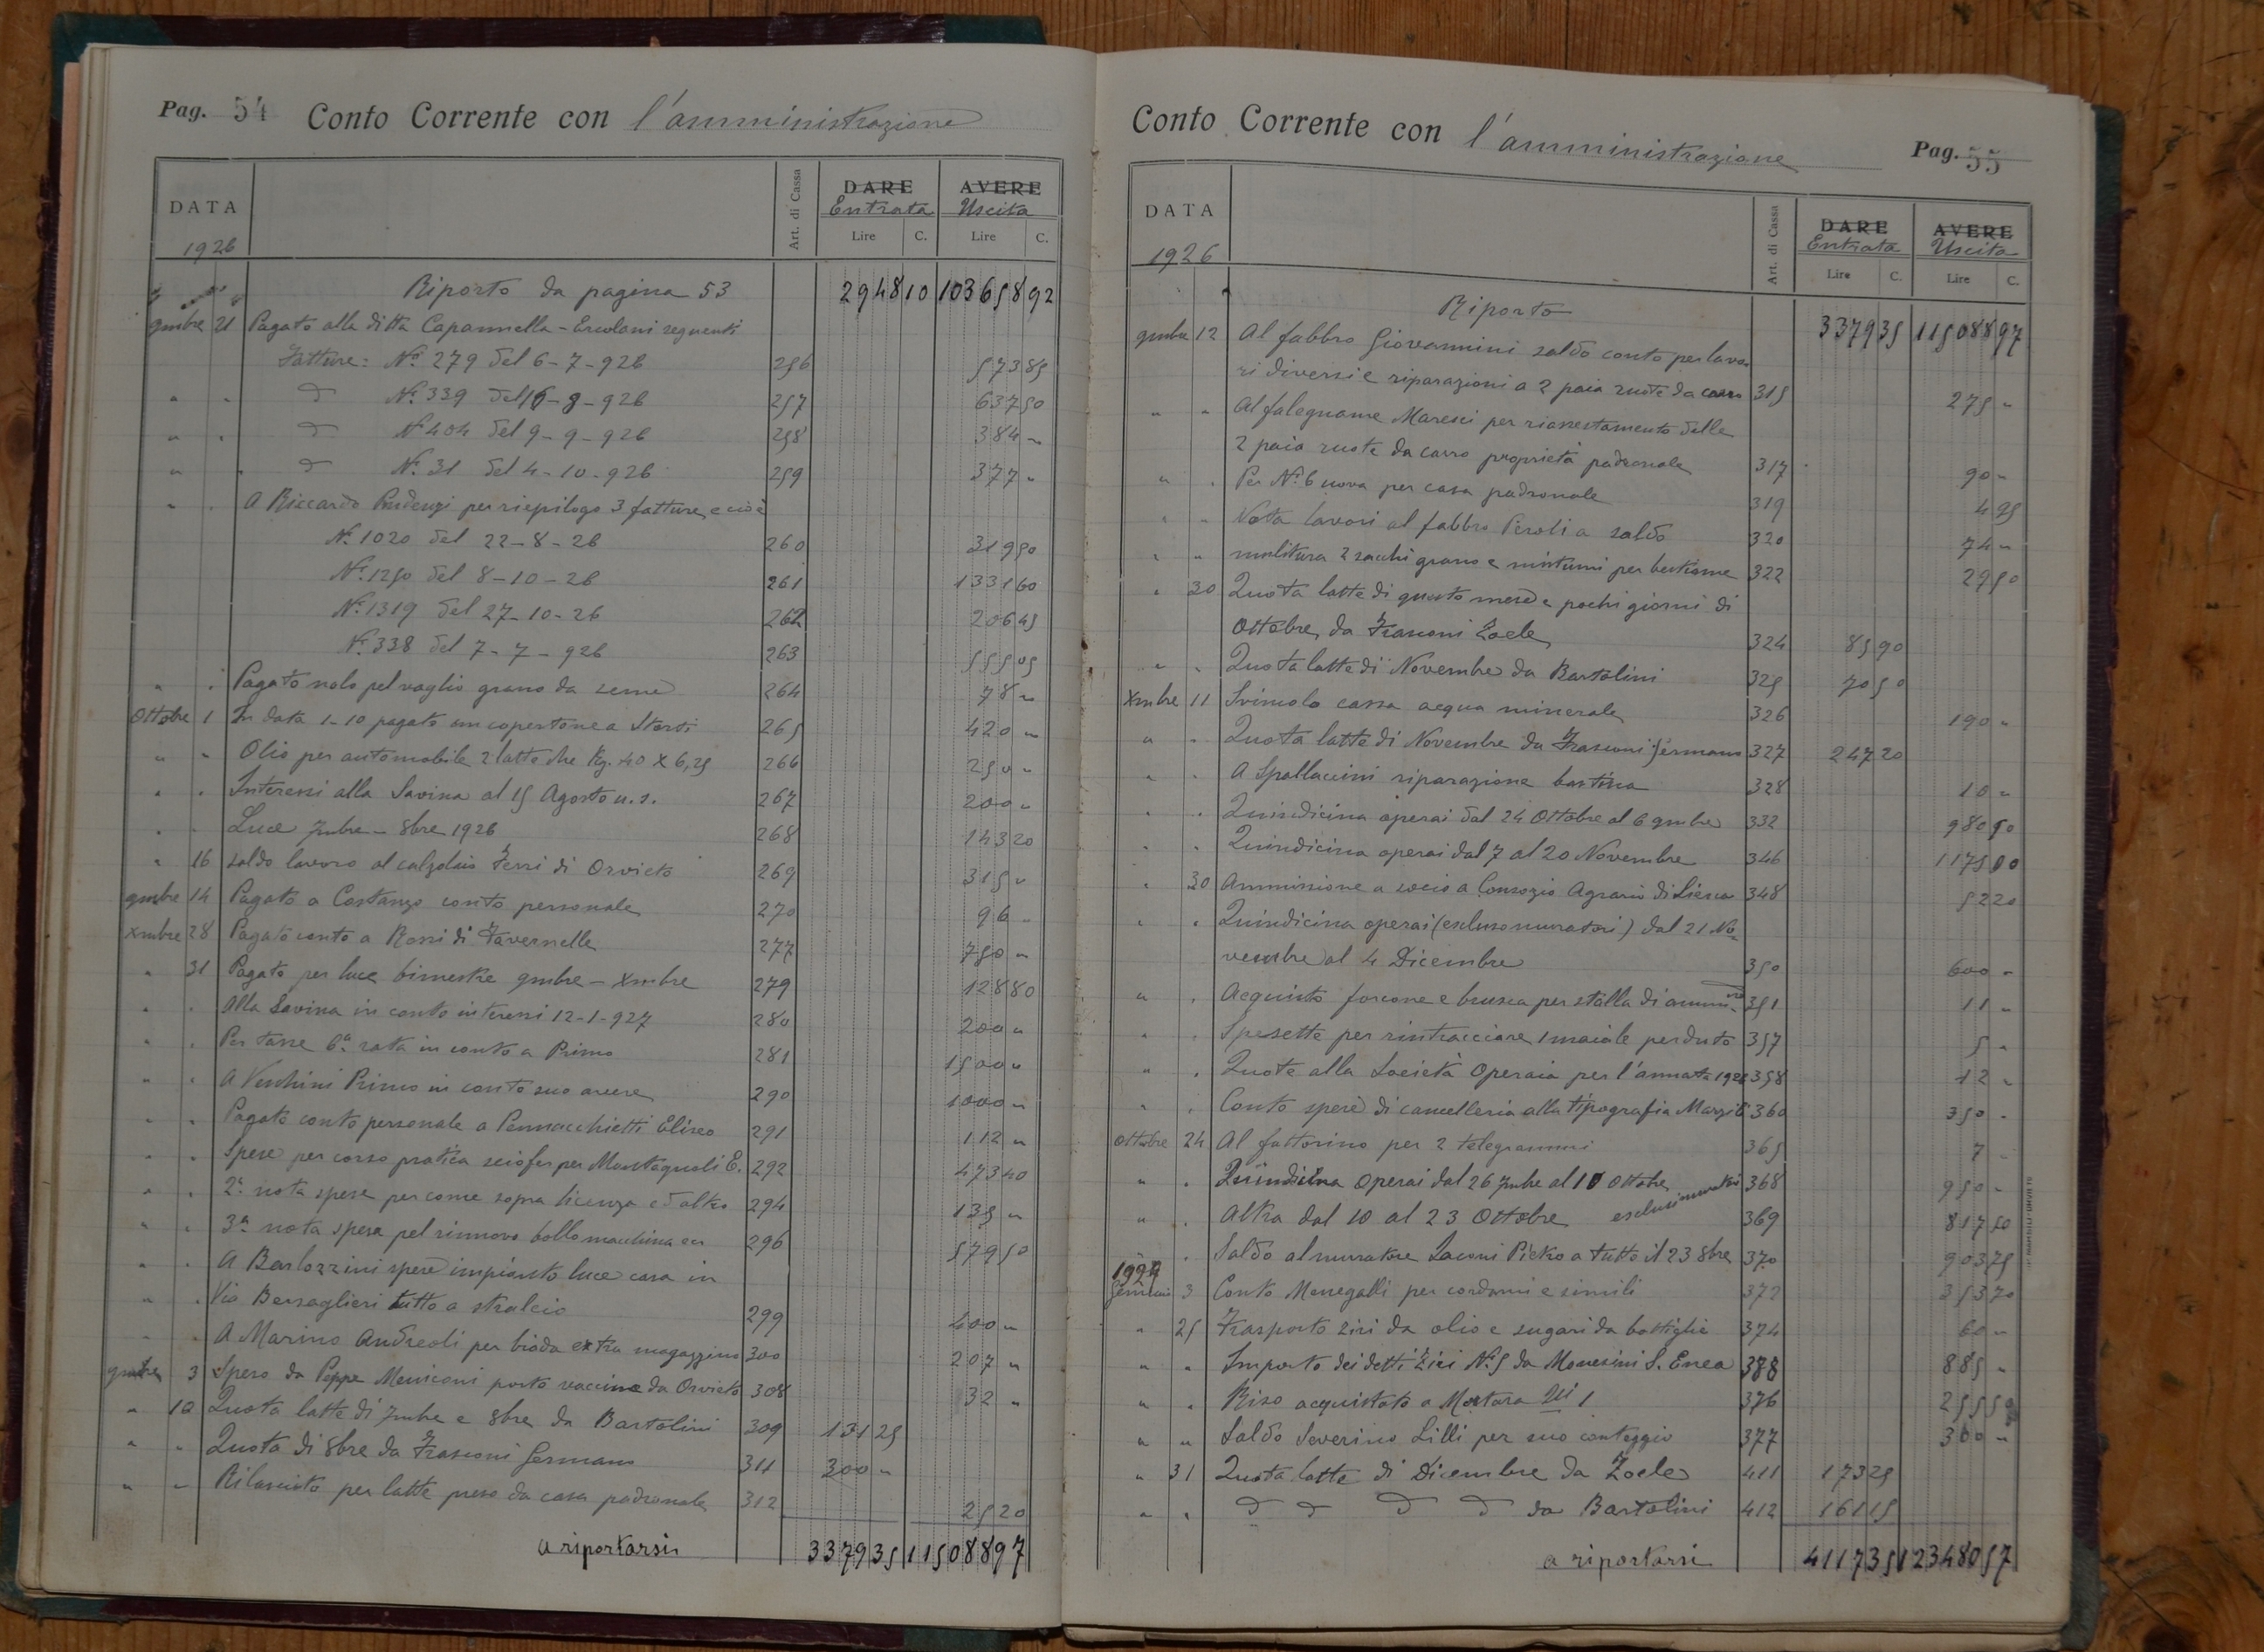 Pag. 54 Conto Corrente con l'amministrazione
DATA
Art. di Cassa
DARE AVERE
Entrata Uscita
Lire C. Lire C.
1926
Riporto da pagina 53 2948 10 103658 92
9mbre 21 Pagato alla ditta Capannella - Ercolani seguenti
Fatture: N.º 279 del 6-7-926 256 573 85
" " d N.º 339 del 16-8-926 257 637 50
" " d N.º 404 del 9-9-926 258 384 "
" " d N.º 31 del 4-10-926 259 377 "
" " A Riccardo per riepilogo 3 fatture e cioè
N.º 1020 del 22-8-26 260 319 50
N.º 1250 del 8-10-26 261 1331 60
N.º 1319 del 27-10-26 262 206 45
N.º 338 del 7-7-926 263 555 05
" " Pagato nolo pel vaglio grano da seme 264 78 "
Ottobre 1 In data 1-10 pagato un copertone a Storti 265 420 "
" " Olio per automobile 2 latte che Kg. 40 x 6,25 266 250 "
" " Interessi alla Savina al 15 Agosto u.s. 267 200 "
" " Luce 7mbre - 8bre 1926 268 143 20
" 16 saldo lavoro al calzolaio Ferri di Orvieto 269 315 "
9mbre 14 Pagato a Costanzo conto personale 270 96 "
Xmbre 28 Pagato conto a Rossi di Tavernelle 277 750 "
" 31 Pagato per luce bimestre 9mbre - Xmbre 279 128 80
" " Alla Savina in conto interessi 12-1-927 280 200 "
" " Per tasse 6ª rata in conto a Primo 281 1500 "
" " A Vechini Primo in conto suo avere 290 1000 "
" " Pagato conto personale a Pennacchietti Eliseo 291 112 "
" " Spese per corso pratica sciofer per Montagnoli E. 292 473 40
" " 2ª nota spese per come sopra licenza ed altro 294 135 "
" " 3ª nota spesa pel rinnovo bollo macchina ecc 296 579 50
" " A Barlozzini spese impianto luce casa in
" " Via Bersaglieri tutto a stralcio 299 400 "
" " A Marino Andreoli per biada extra magazzino 300 207 "
9mbre 3 Spesa da Peppe Meniconi porto vaccina da Orvieto 308 32 "
" 10 Quota latte di 7mbre e 8bre da Bartolini 309 131 25
" " Quota di 8bre da Frasconi Germano 311 300 "
" " Rilasciato per latte preso da casa padronale 312 25 20
a riportarsi 3379 35 115088 97
Conto Corrente con l'amministrazione Pag. 55
DATA
Art. di Cassa
DARE AVERE
Entrata Uscita
Lire C. Lire C.
1926
Riporto 3379 35 115088 97
9mbre 12 Al fabbro Giovannini saldo conto per lavo-
ri diversi e riparazioni a 2 paia ruote da carro 315 275 "
" " Al falegname Maresci per riassestamento delle
2 paia ruote da carro proprietà padronale 317 90 "
" " Per N.º 6 uova per casa padronale 319 4 95
" " Nota lavori al fabbro Piroli a saldo 320 74 "
" " molitura 2 sacchi grano e mistumi per bestiame 322 29 50
" 30 Quota latte di questo mese e pochi giorni di
Ottobre da Frasconi Zoele 324 85 90
" " Quota latte di Novembre da Bartolini 325 70 50
Xmbre 11 Svincolo cassa acqua minerale 326 190 "
" " Quota latte di Novembre da Frasconi Germano 327 247 20
" " A Spallaccini riparazione bastina 328 10 "
" " Quindicina operai dal 24 Ottobre al 6 9mbre 332 980 50
" " Quindicina operai dal 7 al 20 Novembre 346 1175 00
" 30 Ammissione a socio a Consozio Agrario di 348 52 20
" " Quindicina operai (escluso muratori) dal 21 No-
vembre al 4 Dicembre 350 600 "
" " Acquisto forcone e brusca per stalla di amm.ne 351 11 "
" " Spesette per rintracciare 1 maiale perduto 357 5 "
" " Quote alla Società Operaia per l'annata 1926 358 12 "
" " Conto spese di cancelleria alla tipografia 360 350 "
Ottobre 24 Al fattorino per 2 telegrammi 365 7 "
" " Quindicina operai dal 26 7mbre al 10 Ottobre 368 950 "
" " Altra dal 10 al 23 Ottobre esclusi muratori 369 817 50
" Saldo al muratore Iaconi Pietro a tutto il 23 8bre 370 903 75
1927
Gennaio 3 Conto Menegalli per cordami e simili 372 353 70
" 25 Trasporto ziri da olio e sugari da bottiglie 374 60 "
" " Importo dei detti ziri N.º 5 da Monesini S. Enea 378 885 "
" " Riso acquistato a Mortara Qli 1 376 255 50
" " Saldo Severino Lilli per suo conteggio 377 360 "
" 31 Quota latte di Dicembre da Zoele 411 173 25
" " d d d d da Bartolini 412 161 15
a riportarsi 4117 35 123480 57